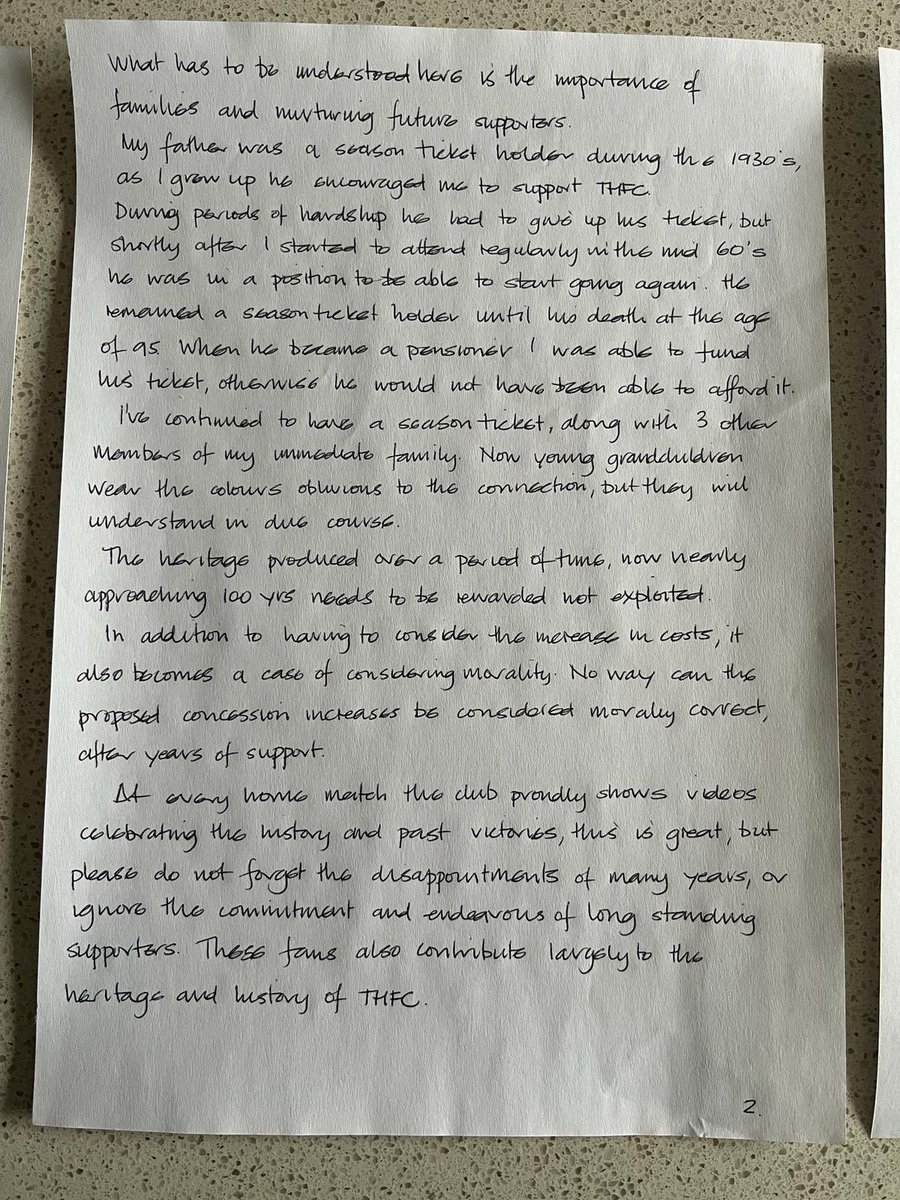 What has to be understood here is the importance of
families and nurturing future supporters.
My father was a season ticket holder during the 1930's,
as I grew up he encouraged me to support THFC.
During periods of hardship he had to give up his ticket, but
shortly after I started to attend regularly in the mid 60's
he was in a position to be able to start going again. He
remained a season ticket holder until his death at the age
of 95. When he became a pensioner I was able to fund
his ticket, otherwise he would not have been able to afford it.
I've continued to have a season ticket, along with 3 other
members of my immediate family. Now young grandchildren
wear the colours oblivious to the connection, but they will
understand in due course.
The heritage produced over a period of time, now nearly
approaching 100 yrs needs to be rewarded not exploited.
In addition to having to consider the increase in costs, it
also becomes a case of considering morality. No way can the
proposed concession increases be considered moraly correct,
after years of support.
At every home match the club proudly shows videos
celebrating the history and past victories, this is great, but
please do not forget the disappointments of many years, or
ignore the commitment and endeavous of long standing
supporters. These fans also contribute largely to the
heritage and history of THFC.
2.